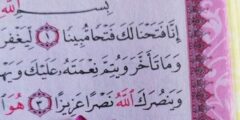 بِسْمِ اللَّهِ
إِنَّا فَتَحْنَا لَكَ فَتْحًا مُّبِينًا ١ لِّيَغْفِرَ
وَمَا تَأَخَّرَ وَيُتِمَّ نِعْمَتَهُ عَلَيْكَ وَيَهْدِ
وَيَنصُرَكَ اللَّهُ نَصْرًا عَزِيزًا ٣ هُوَ